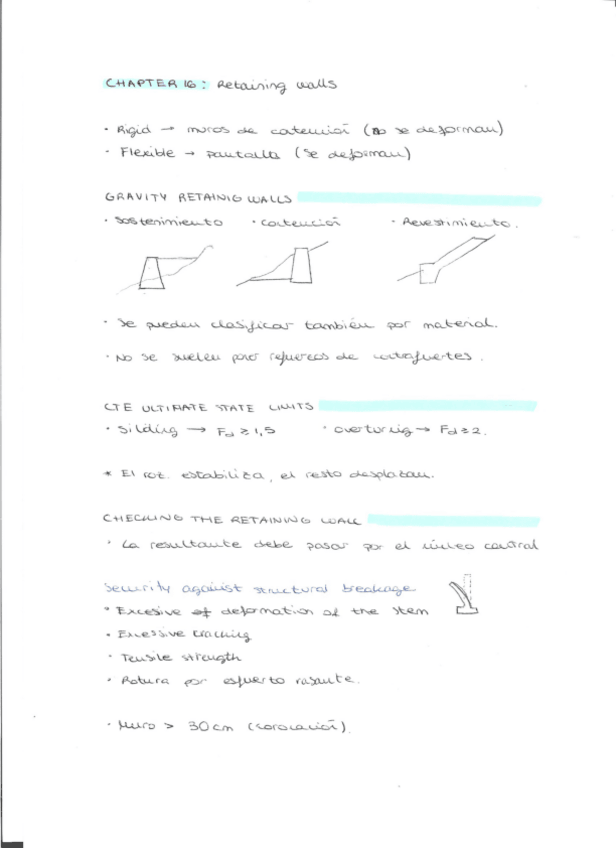 CHAPTER 16: Retaining walls
· Rigid → muros de contención (no se deforman)
· Flexible → pantalla (se deforman)
GRAVITY RETAINIG WALLS
· Sostenimiento · Contención · Revestimiento.
· Se pueden clasificar también por material.
· No se suelen poner refuerzos de contrafuertes.
CTE ULTIMATE STATE LIMITS
· Silding → Fd ≥ 1,5 · overturnig → Fd ≥ 2.
* El roz. estabiliza, el resto desplazan.
CHECKING THE RETAINING WALL
· La resultante debe pasar por el núcleo central
Security against structural breakage
· Excesive of deformation of the stem
· Excessive cracking
· Tensile strength
· Rotura por esfuerto rasante.
· Muro > 30 cm (coronación)